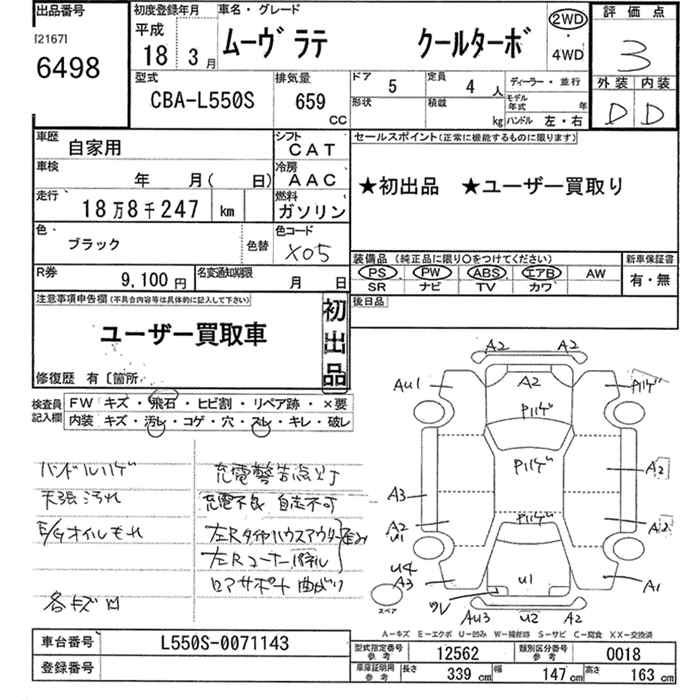 出品番号
[2167]
6498
初度登録年月
平成
18年 3月
車名・グレード
ムーヴラテ クールターボ
2WD
・
4WD
評価点
3
外装 内装
D D
型式
CBA-L550S
排気量
659
CC
ドア
5
定員
4 人
ディーラー・並行
形状
積載
kg
モデル年式
年
ハンドル 左・右
車歴
自家用
シフト
CAT
車検
年 月( 日)
冷房
AAC
走行
18万8千247 km
燃料
ガソリン
色
ブラック
色替
色コード
X05
R券
9,100円
名変通知期限
月 日
セールスポイント(正常に機能するものに限ります)
★初出品 ★ユーザー買取り
装備品 (純正品に限り○をつけてください)
新車保証書
PS PW ABS エアB AW
SR ナビ TV カワ
有・無
後日品
注意事項申告欄(不具合内容等は具体的に記入して下さい)
ユーザー買取車
初出品
修復歴 有〔箇所
検査員
記入欄
FW キズ・飛石・ヒビ割・リペア跡・×要
内装 キズ・汚レ・コゲ・穴・スレ・キレ・破レ
ハンドルハゲ
天張汚れ
E/Gオイルもれ
各キズ凹
充電警告点灯
充電不良 自走不可
左Rタイヤハウスアウター歪み
左Rコーナーパネル
ロアサポート曲がり
A2
A2
AU1
Pハゲ
Pハゲ
Pハゲ
A2
A3
A2
U1
A2
Pハゲ
U4
A3
U1
A1
ワレ
スペア
AU3
U2
A2
A-キズ E-エクボ U-凹み W-補修跡 S-サビ C-腐食 XX-交換済
車台番号
L550S-0071143
登録番号
型式指定番号
参考
12562
類別区分番号
参考
0018
車庫証明用
参考
長さ
339 cm
幅
147 cm
高さ
163 cm